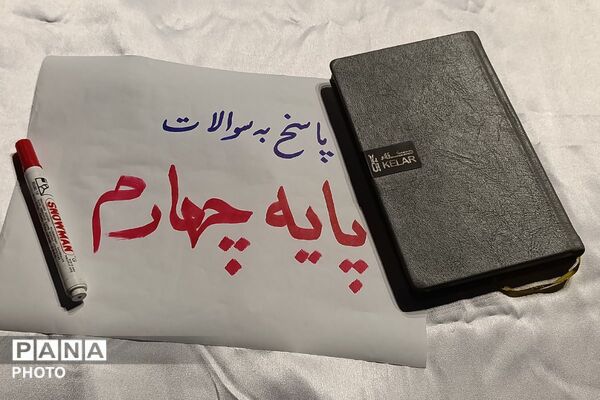 پاسخ به سوالات
پایه چهارم
SNOWMAN
KELAR
PANA
PHOTO